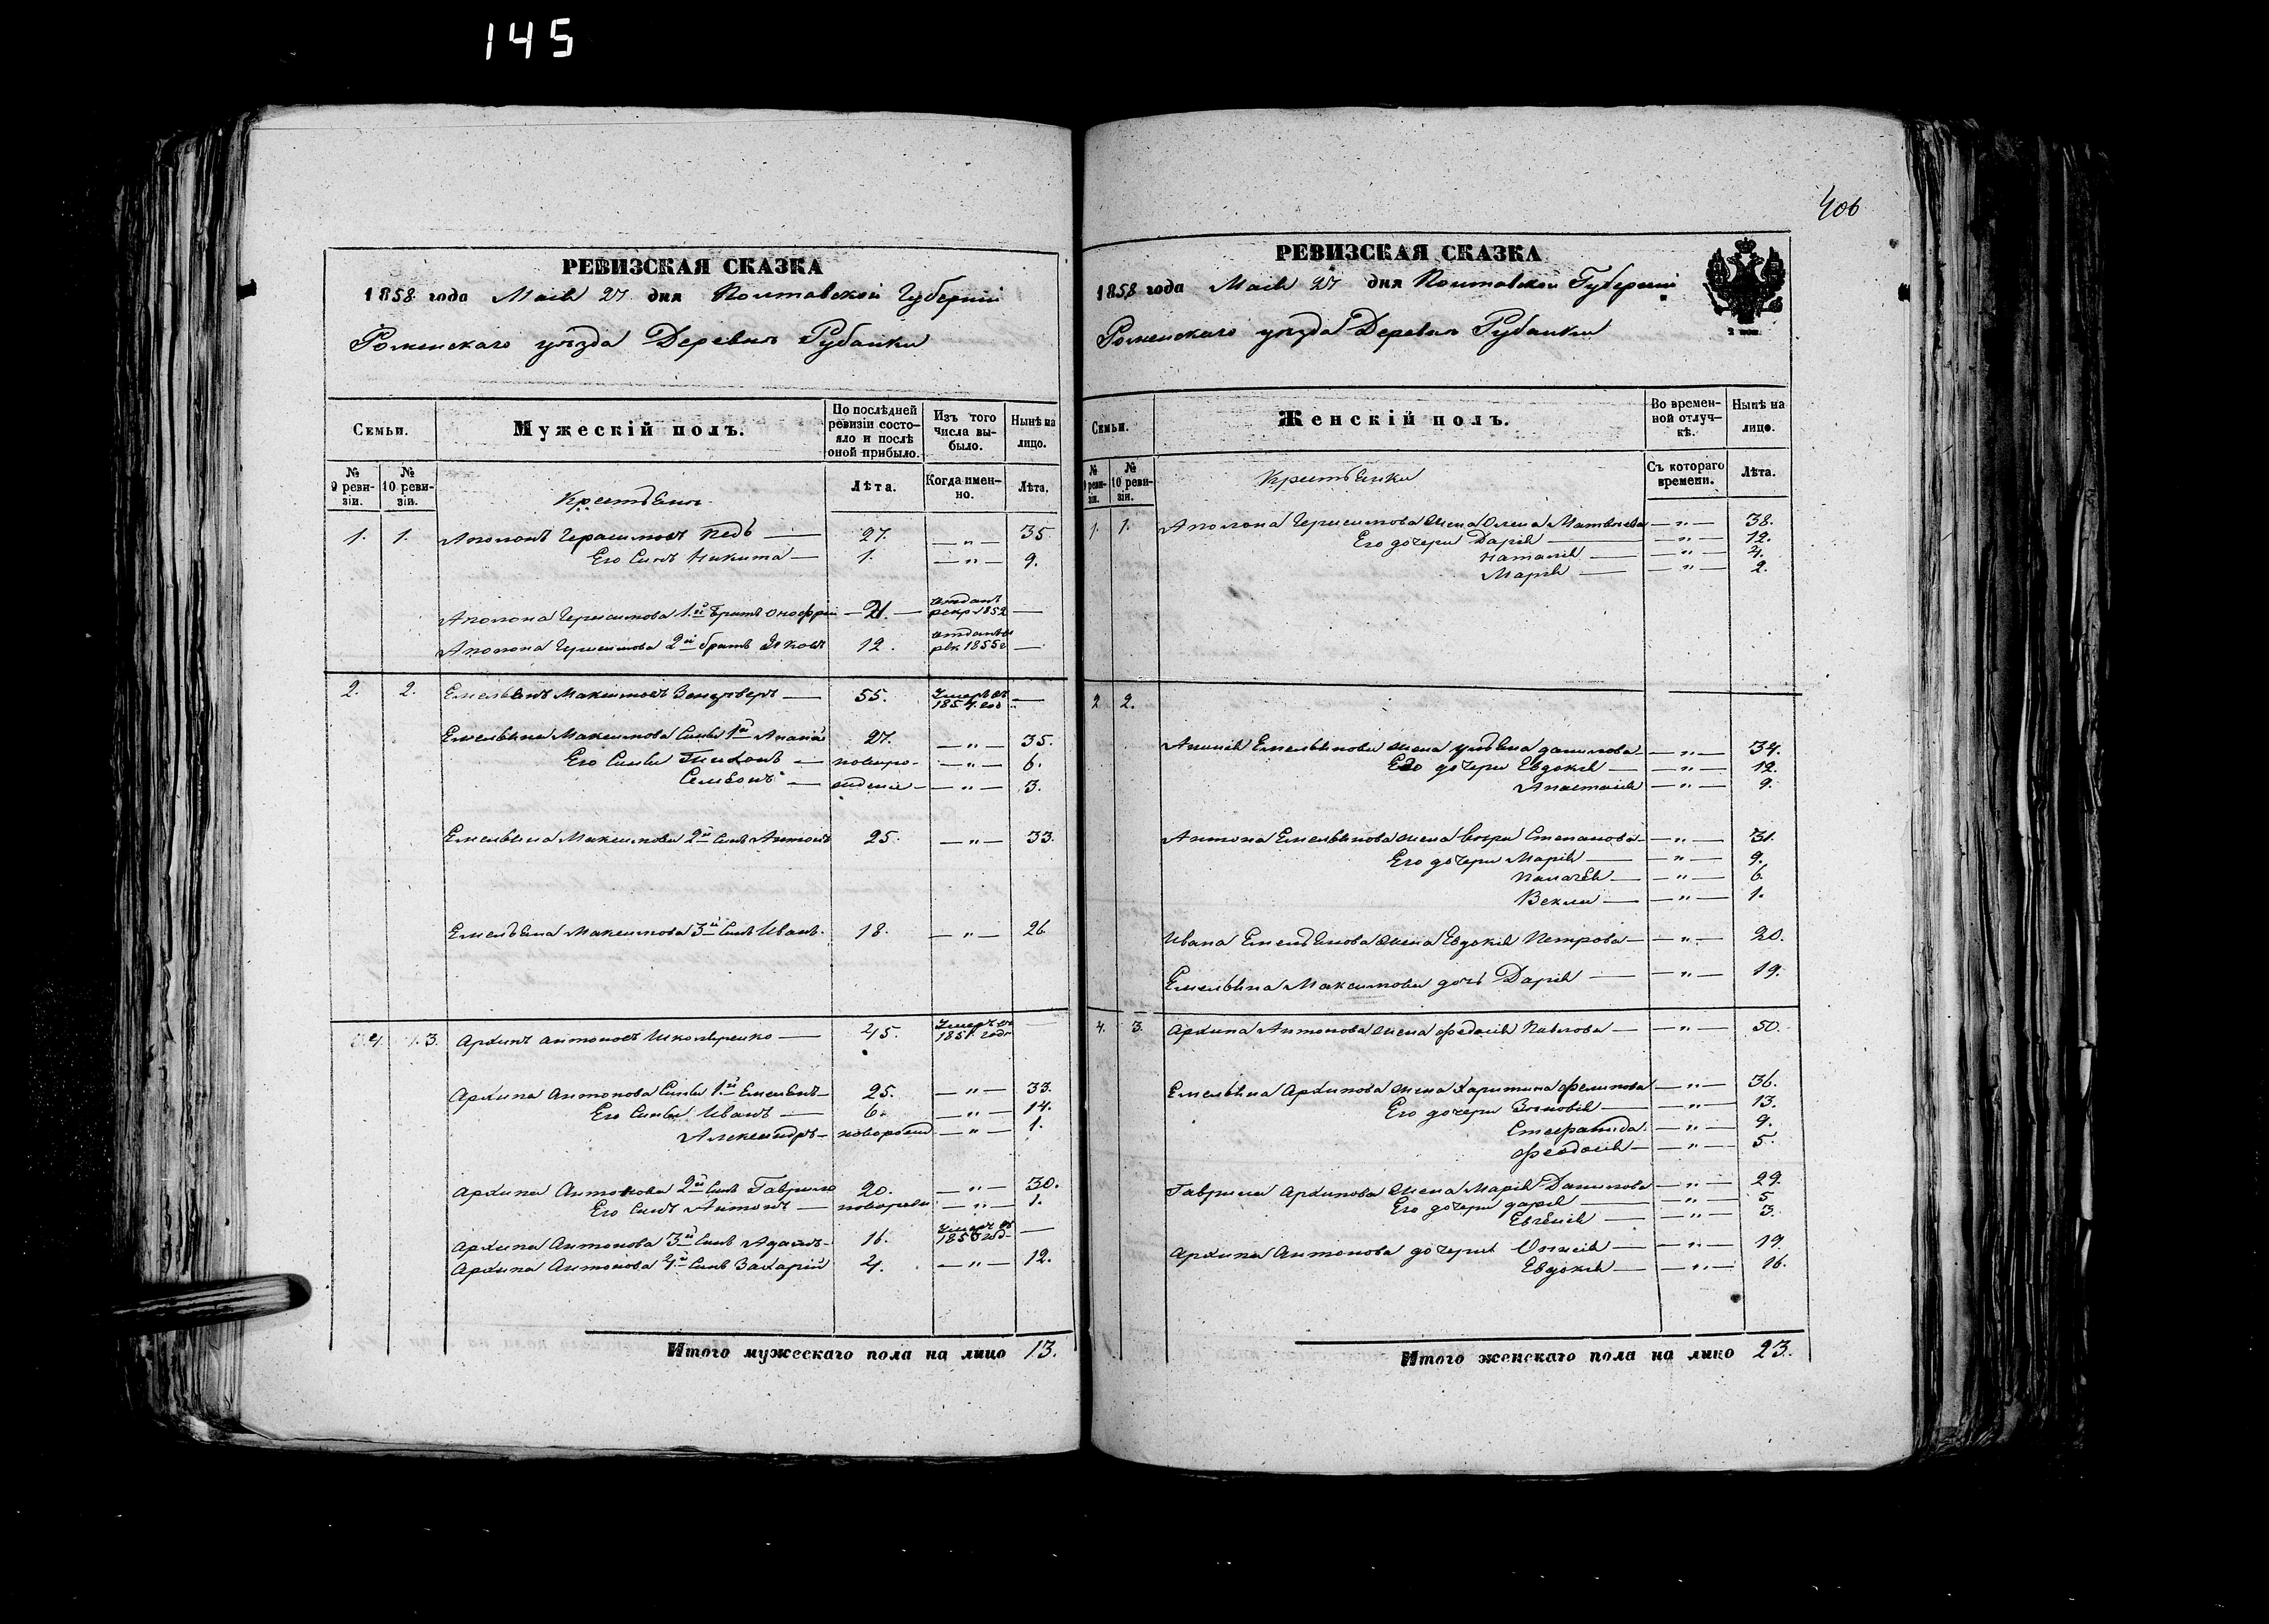 145
406
РЕВИЗСКАЯ СКАЗКА
1858 года Маія 27 дня Полтавской Губерніи
Роменскаго уѣзда Деревни Рубанки
Семьи.
Мужескій полъ.
По послѣдней ревизіи состояло и послѣ оной прибыло.
Изъ того числа выбыло.
Нынѣ на лицо.
№ 9 ревизіи.
№ 10 ревизіи.
Крестьяне
Лѣта.
Когда именно.
Лѣта.
1. 1. Аполонъ Герасимовъ — 27. — „ — 35.
Его Сынъ Никита — 1. — „ — 9.
Аполона Герасимова 1й братъ Онофрій — 21. — отданъ рекр 1852 —
Аполона Герасимова 2й братъ Яковъ 12. отданъ въ рек 1855 г —
2. 2. Емельянъ Максимовъ — 55. Умеръ въ 1854. год —
Емельяна Максимова Сыны 1й Ананій 27. — „ — 35.
Его Сыны Тихонъ — новоро- — „ — 6.
Семіонъ — жденъ — „ — 3.
Емельяна Максимова 2й Сынъ Антонъ 25. — „ — 33.
Емельяна Максимова 3й Сынъ Иванъ. 18. — „ — 26
4. 3. Архипъ Антоновъ — 45. Умеръ въ 1851 годѣ —
Архипа Антонова Сыны 1й Емельянъ — 25. — „ — 33.
Его Сыны Иванъ — 6. — „ — 14.
Александръ — новорожд — „ — 1.
Архипа Антонова 2й Сынъ Гаврило 20. — „ — 30.
Его Сынъ Антонъ — новорож — „ — 1.
Архипа Антонова 3й Сынъ Адамъ — 16. Умеръ въ —
Архипа Антонова 4й Сынъ Захарій 4. — „ — 12.
Итого мужескаго пола на лицо 13.
РЕВИЗСКАЯ СКАЗКА
1858 года Маія 27 дня Полтавской Губерніи
Роменскаго уѣзда Деревни Рубанки
2 коп.
Семьи.
Женскій полъ.
Во временной отлучкѣ.
Нынѣ на лицо.
№ 9 ревизіи.
№ 10 ревизіи.
Крестьянки
Съ котораго времени.
Лѣта.
1. 1. Аполона Герасимова жена Олена Матвѣева — „ — 38.
Его дочери Дарія — „ — 12.
Наталія — „ — 4.
Марія — „ — 2.
2 2.
Ананія Емельянова жена Ульяна Данилова — „ — 34.
Его дочери Евдокія — „ — 12.
Анастасія — „ — 9.
Антона Емельянова жена Степанова — „ — 31.
Его дочери Марія — „ — 9.
Палагія — „ — 6.
Векла — „ — 1.
Ивана Емельянова жена Евдокія Петрова — „ — 20.
Емельяна Максимова дочь Дарія — „ — 19.
4. 3. Архипа Антонова жена Федосія Павлова — „ — 50.
Емельяна Архипова жена Харитина — „ — 36.
Его дочери Зѣновія — „ — 13.
— „ — 9.
Феодосія — „ — 5.
Гаврила Архипова жена Марія Данилова — „ — 29.
Его дочери Дарія — „ — 5
Евгенія — „ — 3.
Архипа Антонова дочери — „ — 19.
Евдокія — „ — 16.
Итого женскаго пола на лицо 23.